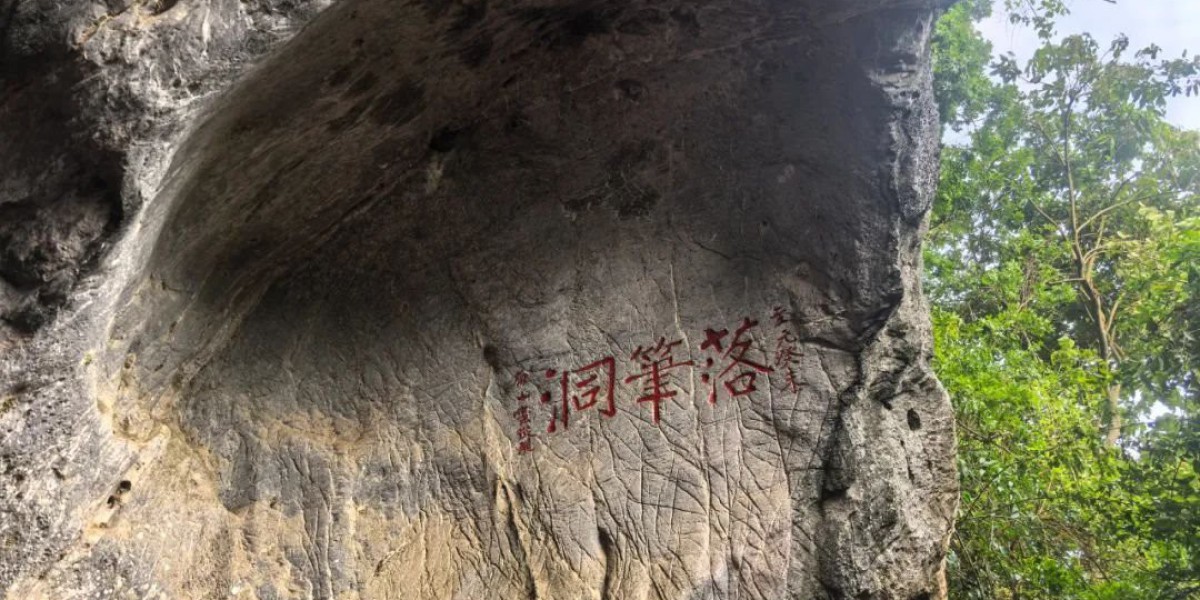 至元癸未
落筆洞